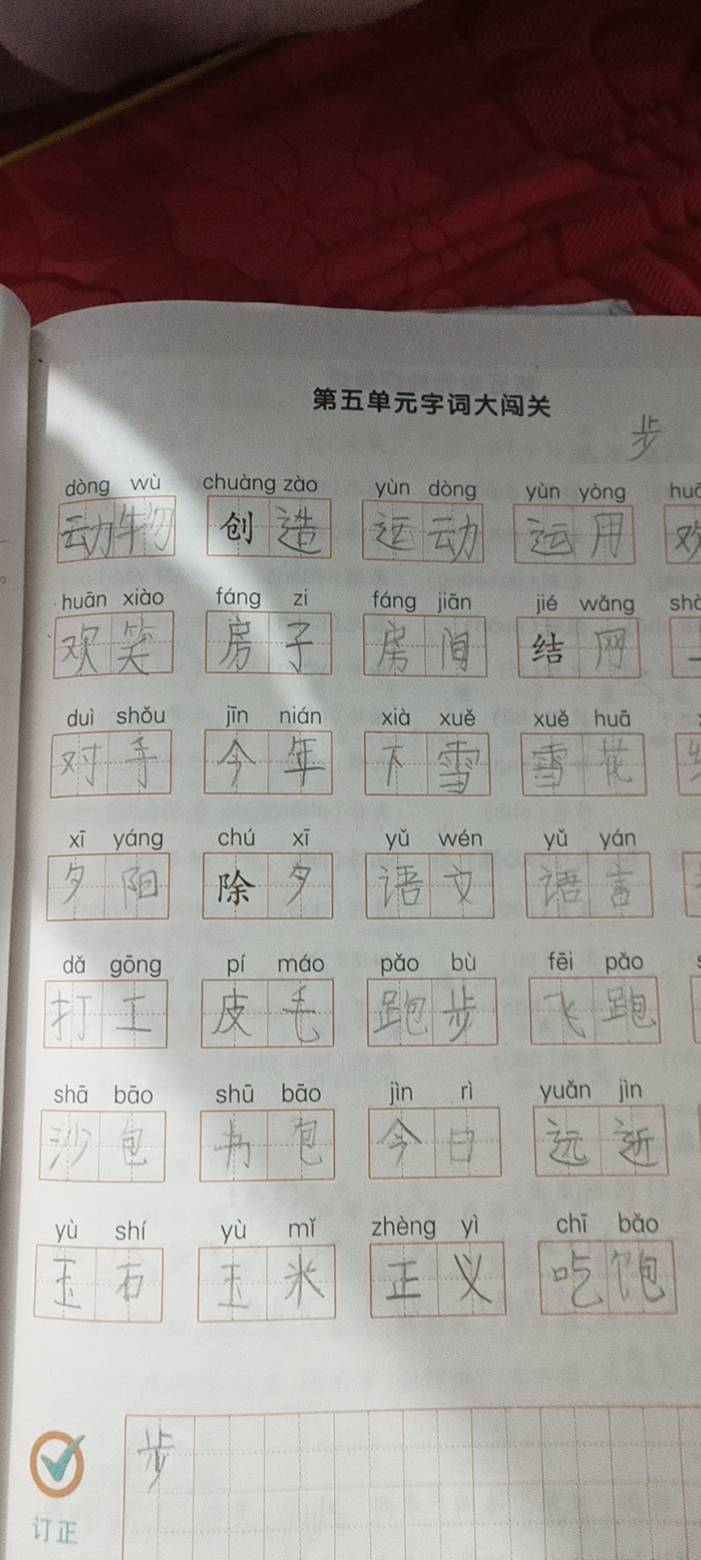 第五单元字词大闯关
步
dòng wù chuàng zào yùn dòng yùn yòng
动物 创造 运动 运用 欢
huān xiào fáng zi fáng jiān jié wǎng
欢笑 房子 房间 结网
duì shǒu jīn nián xià xuě xuě huā
对手 今年 下雪 雪花
xī yáng chú xī yǔ wén yǔ yán
夕阳 除夕 语文 语言
dǎ gōng pí máo pǎo bù fēi pǎo
打工 皮毛 跑步 飞跑
shā bāo shū bāo jìn rì yuǎn jìn
沙包 书包 今日 远近
yù shí yù mǐ zhèng yì chī bǎo
玉石 玉米 正义 吃饱
步
订正